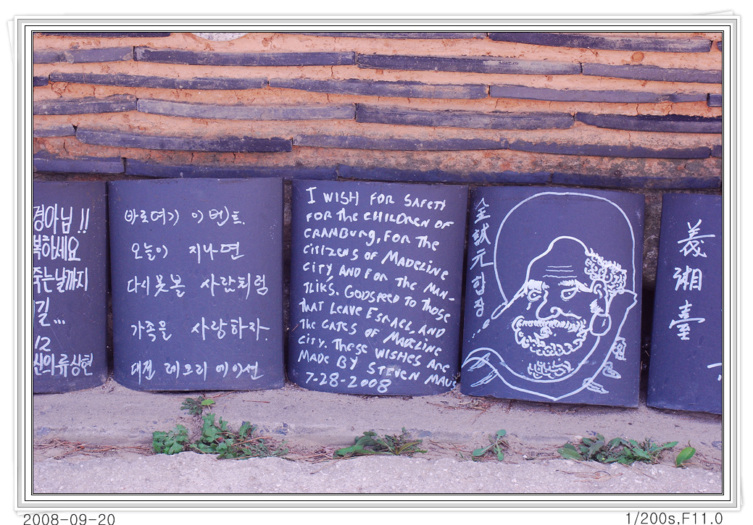 경아님!!
복하세요
주는날까지
길...
12
신의류상현
바로여기 이벤트.
오늘이 지나면
다시못볼 사람처럼
가족을 사랑하자.
대전
I WISH FOR SAFETY
FOR THE CHILDREN OF
CRANBURG, FOR THE
CITIZENS OF MADELINE
CITY AND FOR THE MAN-
TLIKS. GODSPEED TO THOSE
THAT LEAVE ESRAEL AND
THE GATES OF MADELINE
CITY. THESE WISHES ARE
MADE BY STEVEN MAU
7-28-2008
義
湘
臺
2008-09-20
1/200s,F11.0